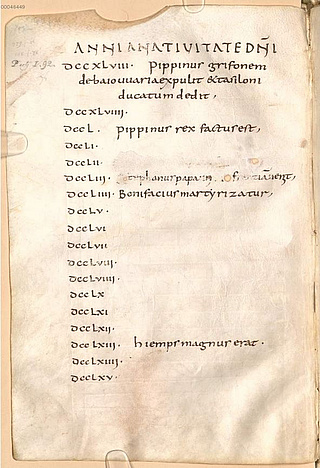 00046449
ANNI ANATIVITATE DÑI
DCCXLVIII. Pippinus grifonem
debaiovvaria expulit & tasiloni
ducatum dedit,
DCCXLVIIII.
DCCL. pippinus rex factus est,
DCCLI.
DCCLII
DCCLIII stephanus papa in
DCCLIIII. Bonifacius martyrizatur,
DCCLV.
DCCLVI
DCCLVII
DCCLVIII.
DCCLVIIII.
DCCLX
DCCLXI
DCCLXII.
DCCLXIII. hiemps magnus erat.
DCCLXIIII.
DCCLXV.